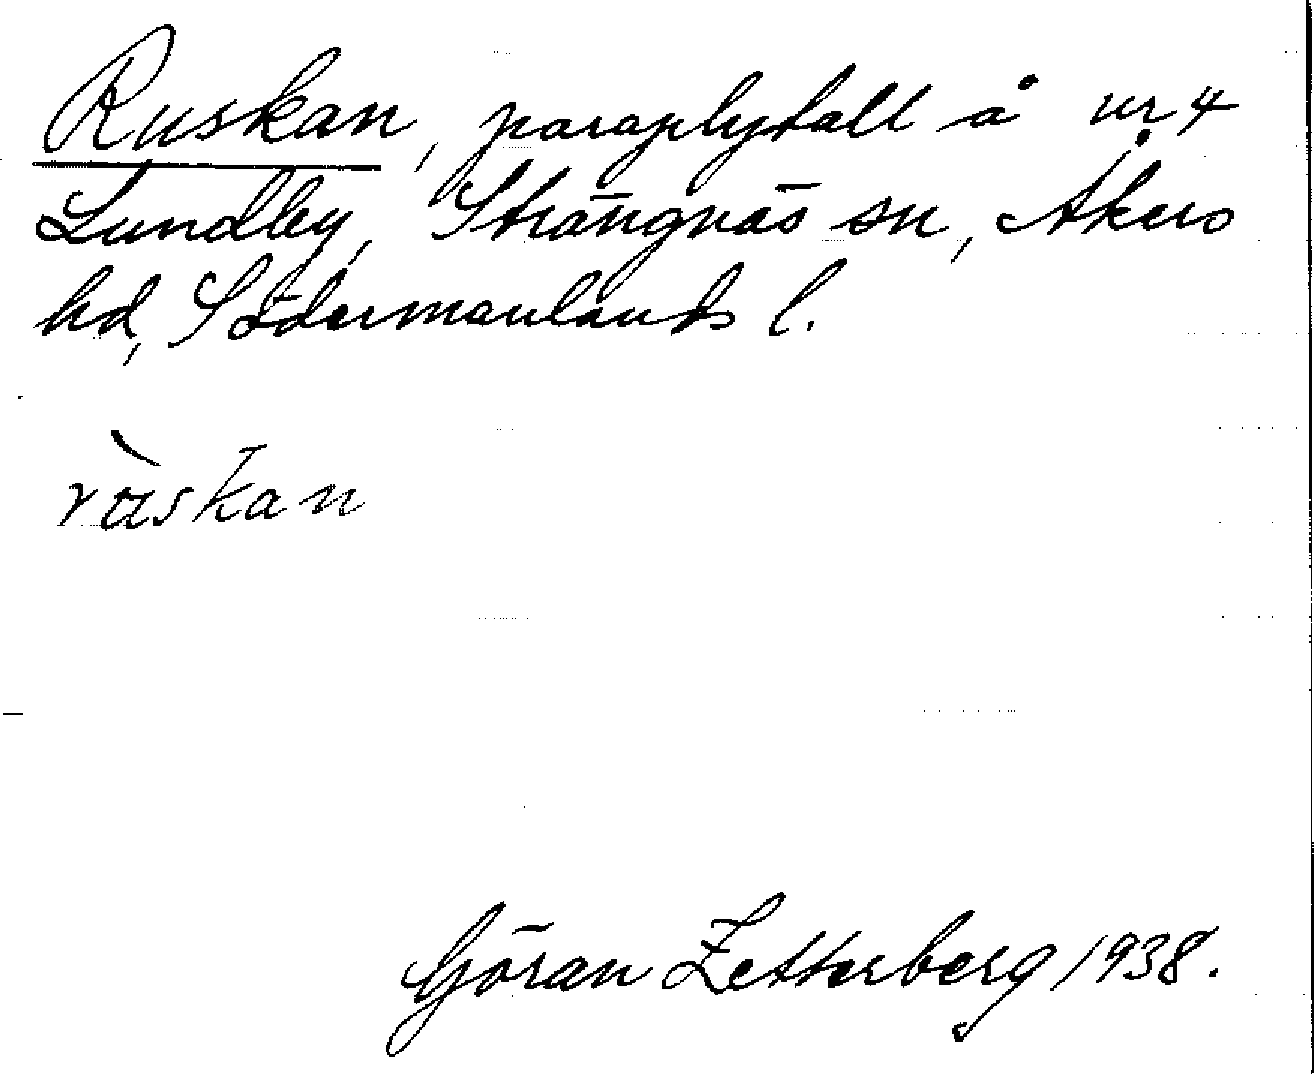 Ruskan, paraplytall å nr 4
Lundby, Strängnäs sn, Åkers
hd, Södermanlands l.
ràskan
Göran Zetterberg 1938.